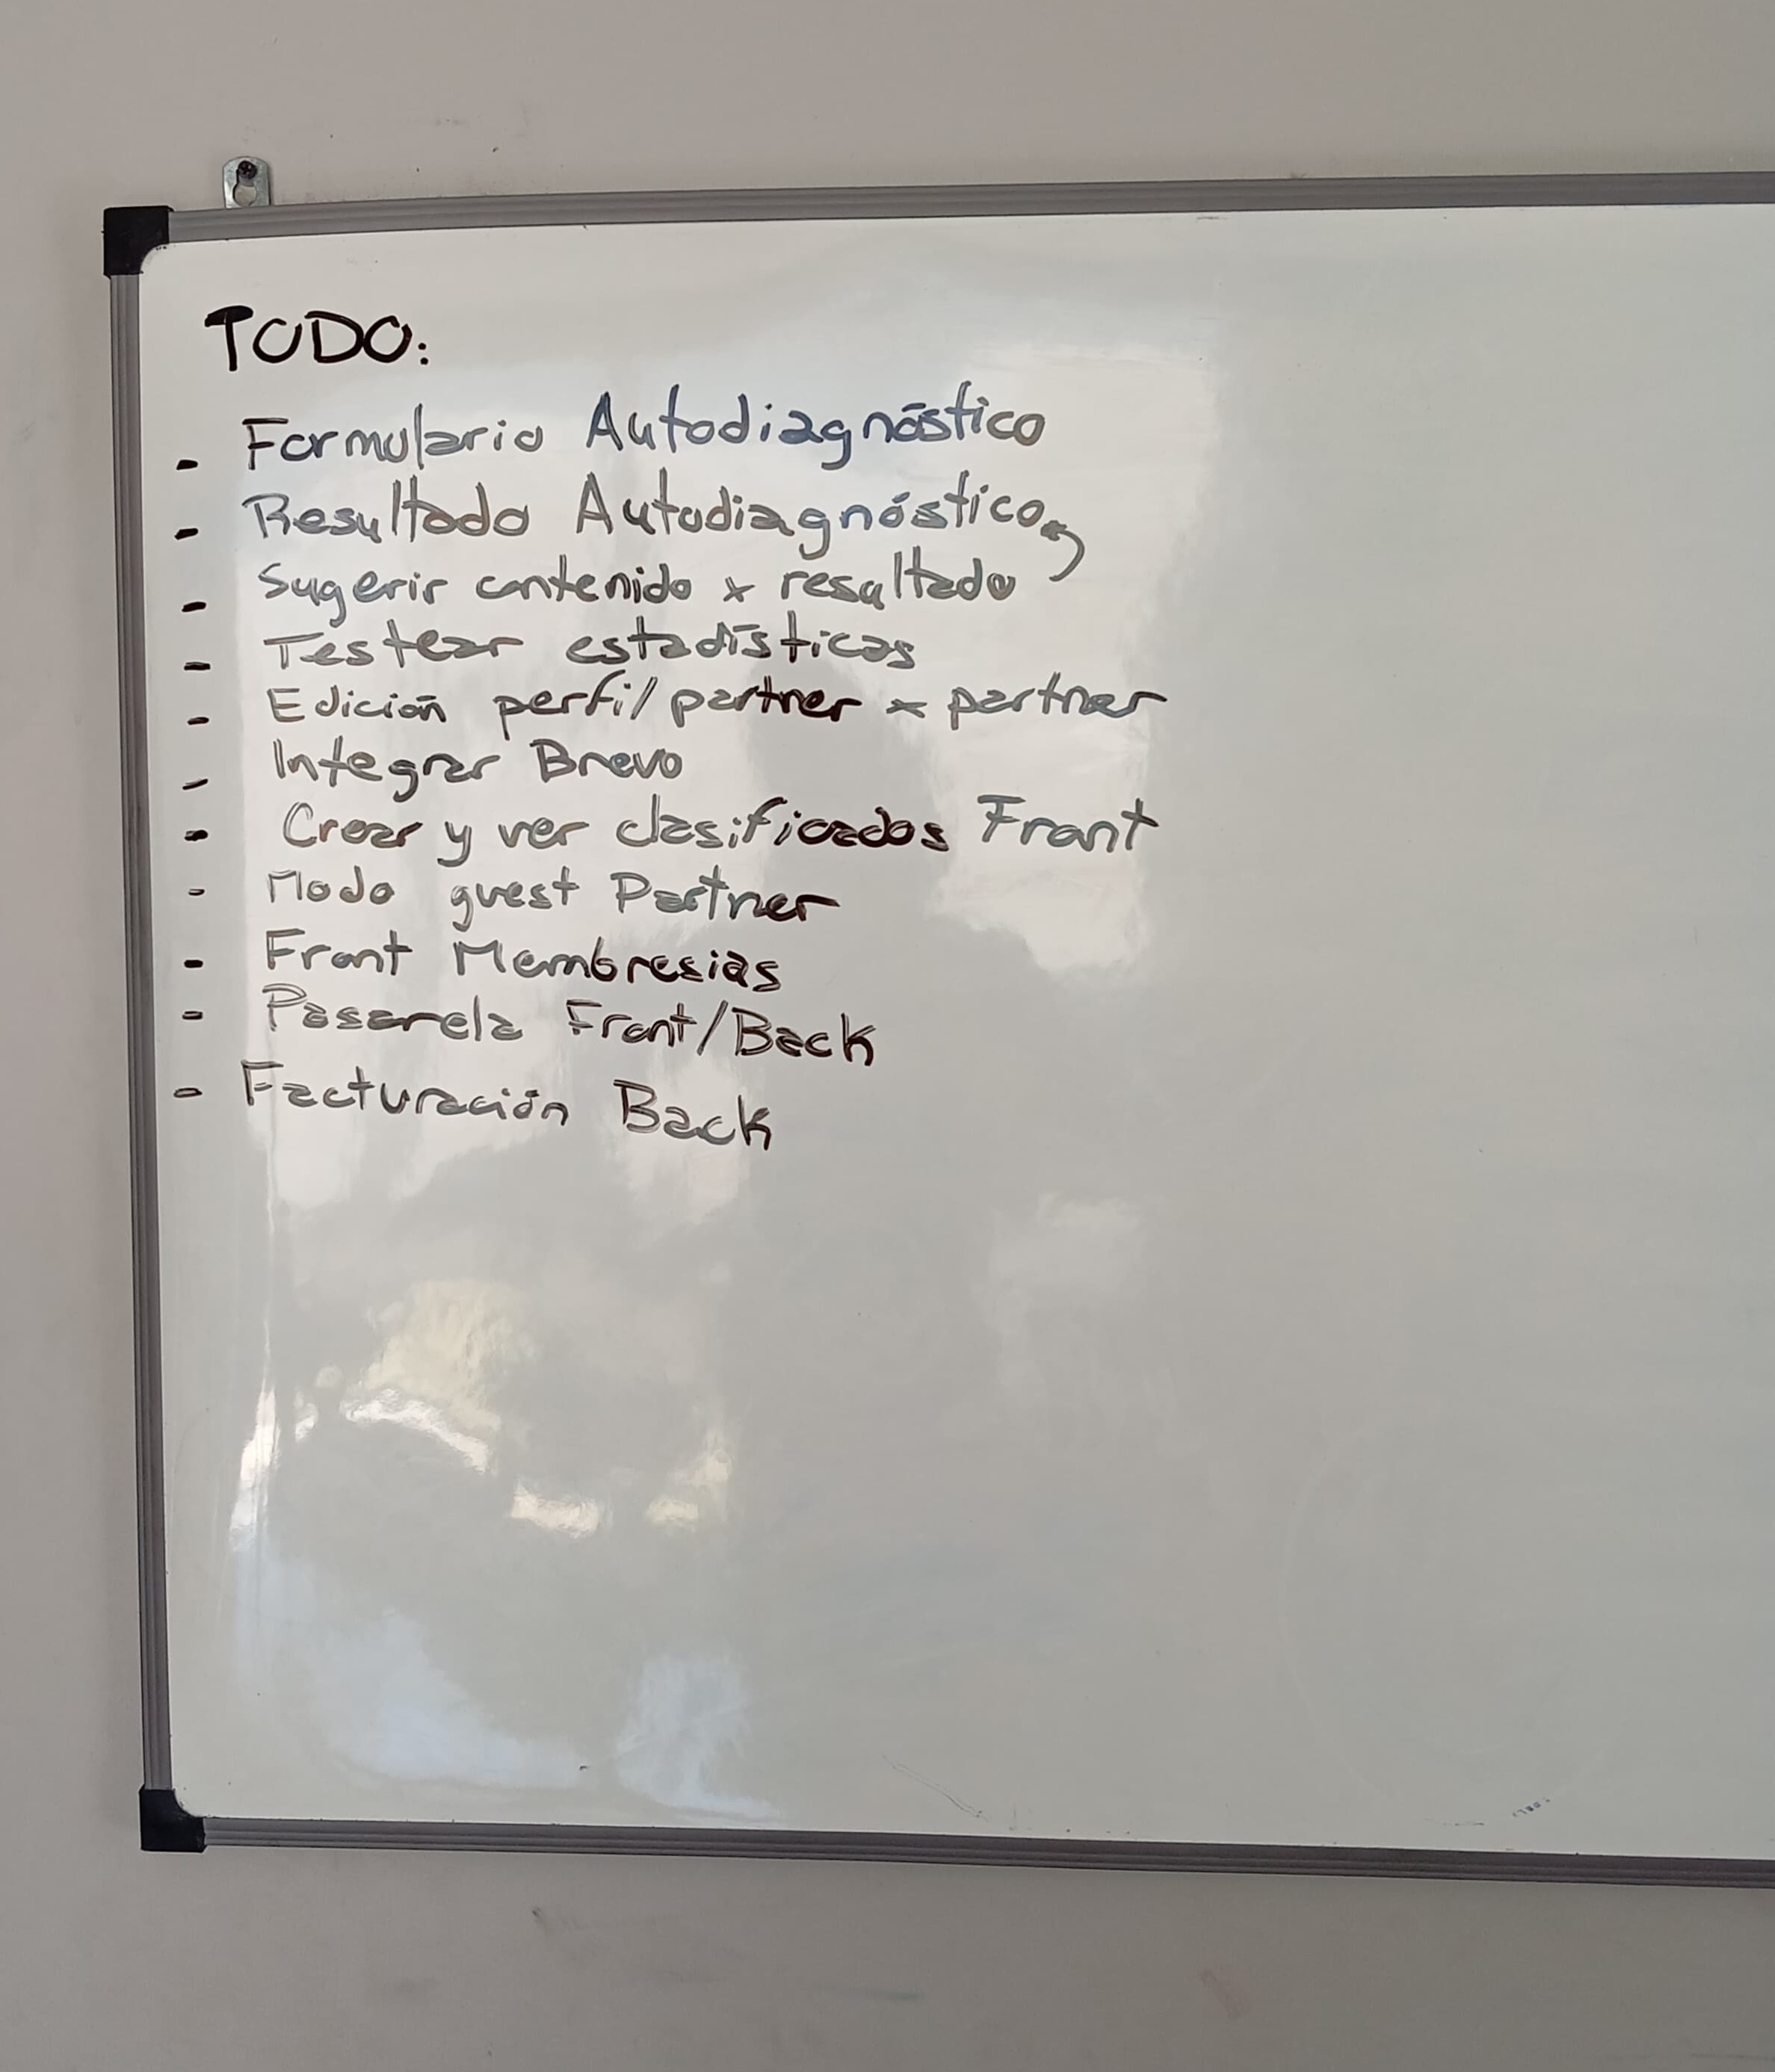 TODO:
- Formulario Autodiagnóstico
- Resultado Autodiagnóstico
- Sugerir contenido x resultado
- Testear estadísticas
- Edición perfil/partner x partner
- Integrar Brevo
- Crear y ver clasificados Front
- Modo guest Partner
- Front Membresias
- Pasarela Front/Back
- Facturación Back